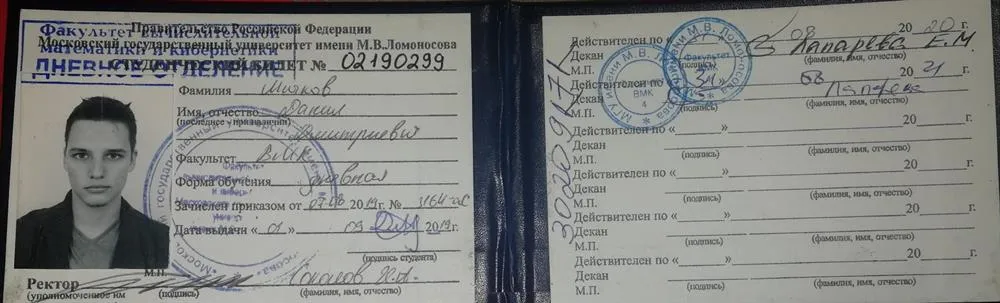 Правительство Российской Федерации
Московский государственный университет имени М.В.Ломоносова
Факультет вычислительной
математики и кибернетики
ДНЕВНОЕ ОТДЕЛЕНИЕ
СТУДЕНЧЕСКИЙ БИЛЕТ № 02190299
Фамилия
Имя, отчество Данил
(последнее - при наличии)
Дмитриевич
Факультет ВМК
Форма обучения дневная
Зачислен приказом от 07.08 2019г. №
Дата выдачи « 01 » 09 2019г.
(подпись студента)
М.П.
Ректор
(уполномоченное им (подпись) (фамилия, имя, отчество)
30202917
Действителен по « 08 20 20 г.
Декан Лапарева Е.М
М.П. (подпись) (фамилия, имя, отчество)
Действителен по 08 20 21
Декан Лапарева
М.П. (подпись) (фамилия, имя, отчество)
Действителен по « » 20 г.
Декан
М.П. (подпись) (фамилия, имя, отчество)
Действителен по « » 20 г.
Декан
М.П. (подпись) (фамилия, имя, отчество)
Действителен по « » 20 г.
Декан
М.П. (подпись) (фамилия, имя, отчество)
Действителен по « » 20 г.
Декан
М.П. (подпись) (фамилия, имя, отчество)
МГУ имени М. В. Ломоносова
ВМК
4
Факультет
ВМК